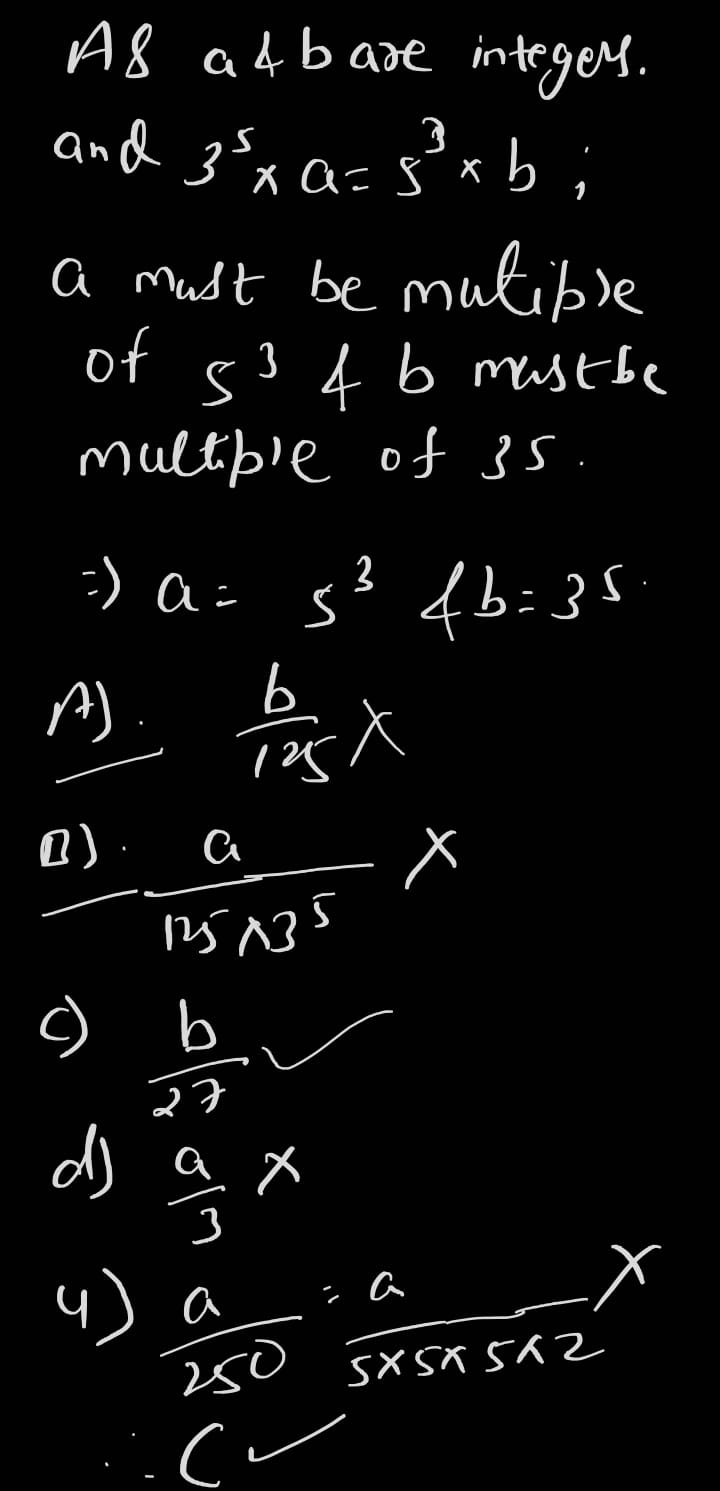 As a & b are integers.
and 3⁵ × a = 5³ × b ;
a must be mutiple
of 5³ & b must be
multiple of 3⁵.
=) a = 5³ & b = 3⁵.
A). b/125 X
B). a/125×3⁵ X
c) b/27 ✓
d) a/3 X
4) a/250 = a/5×5×5×2 X
∴ C ✓